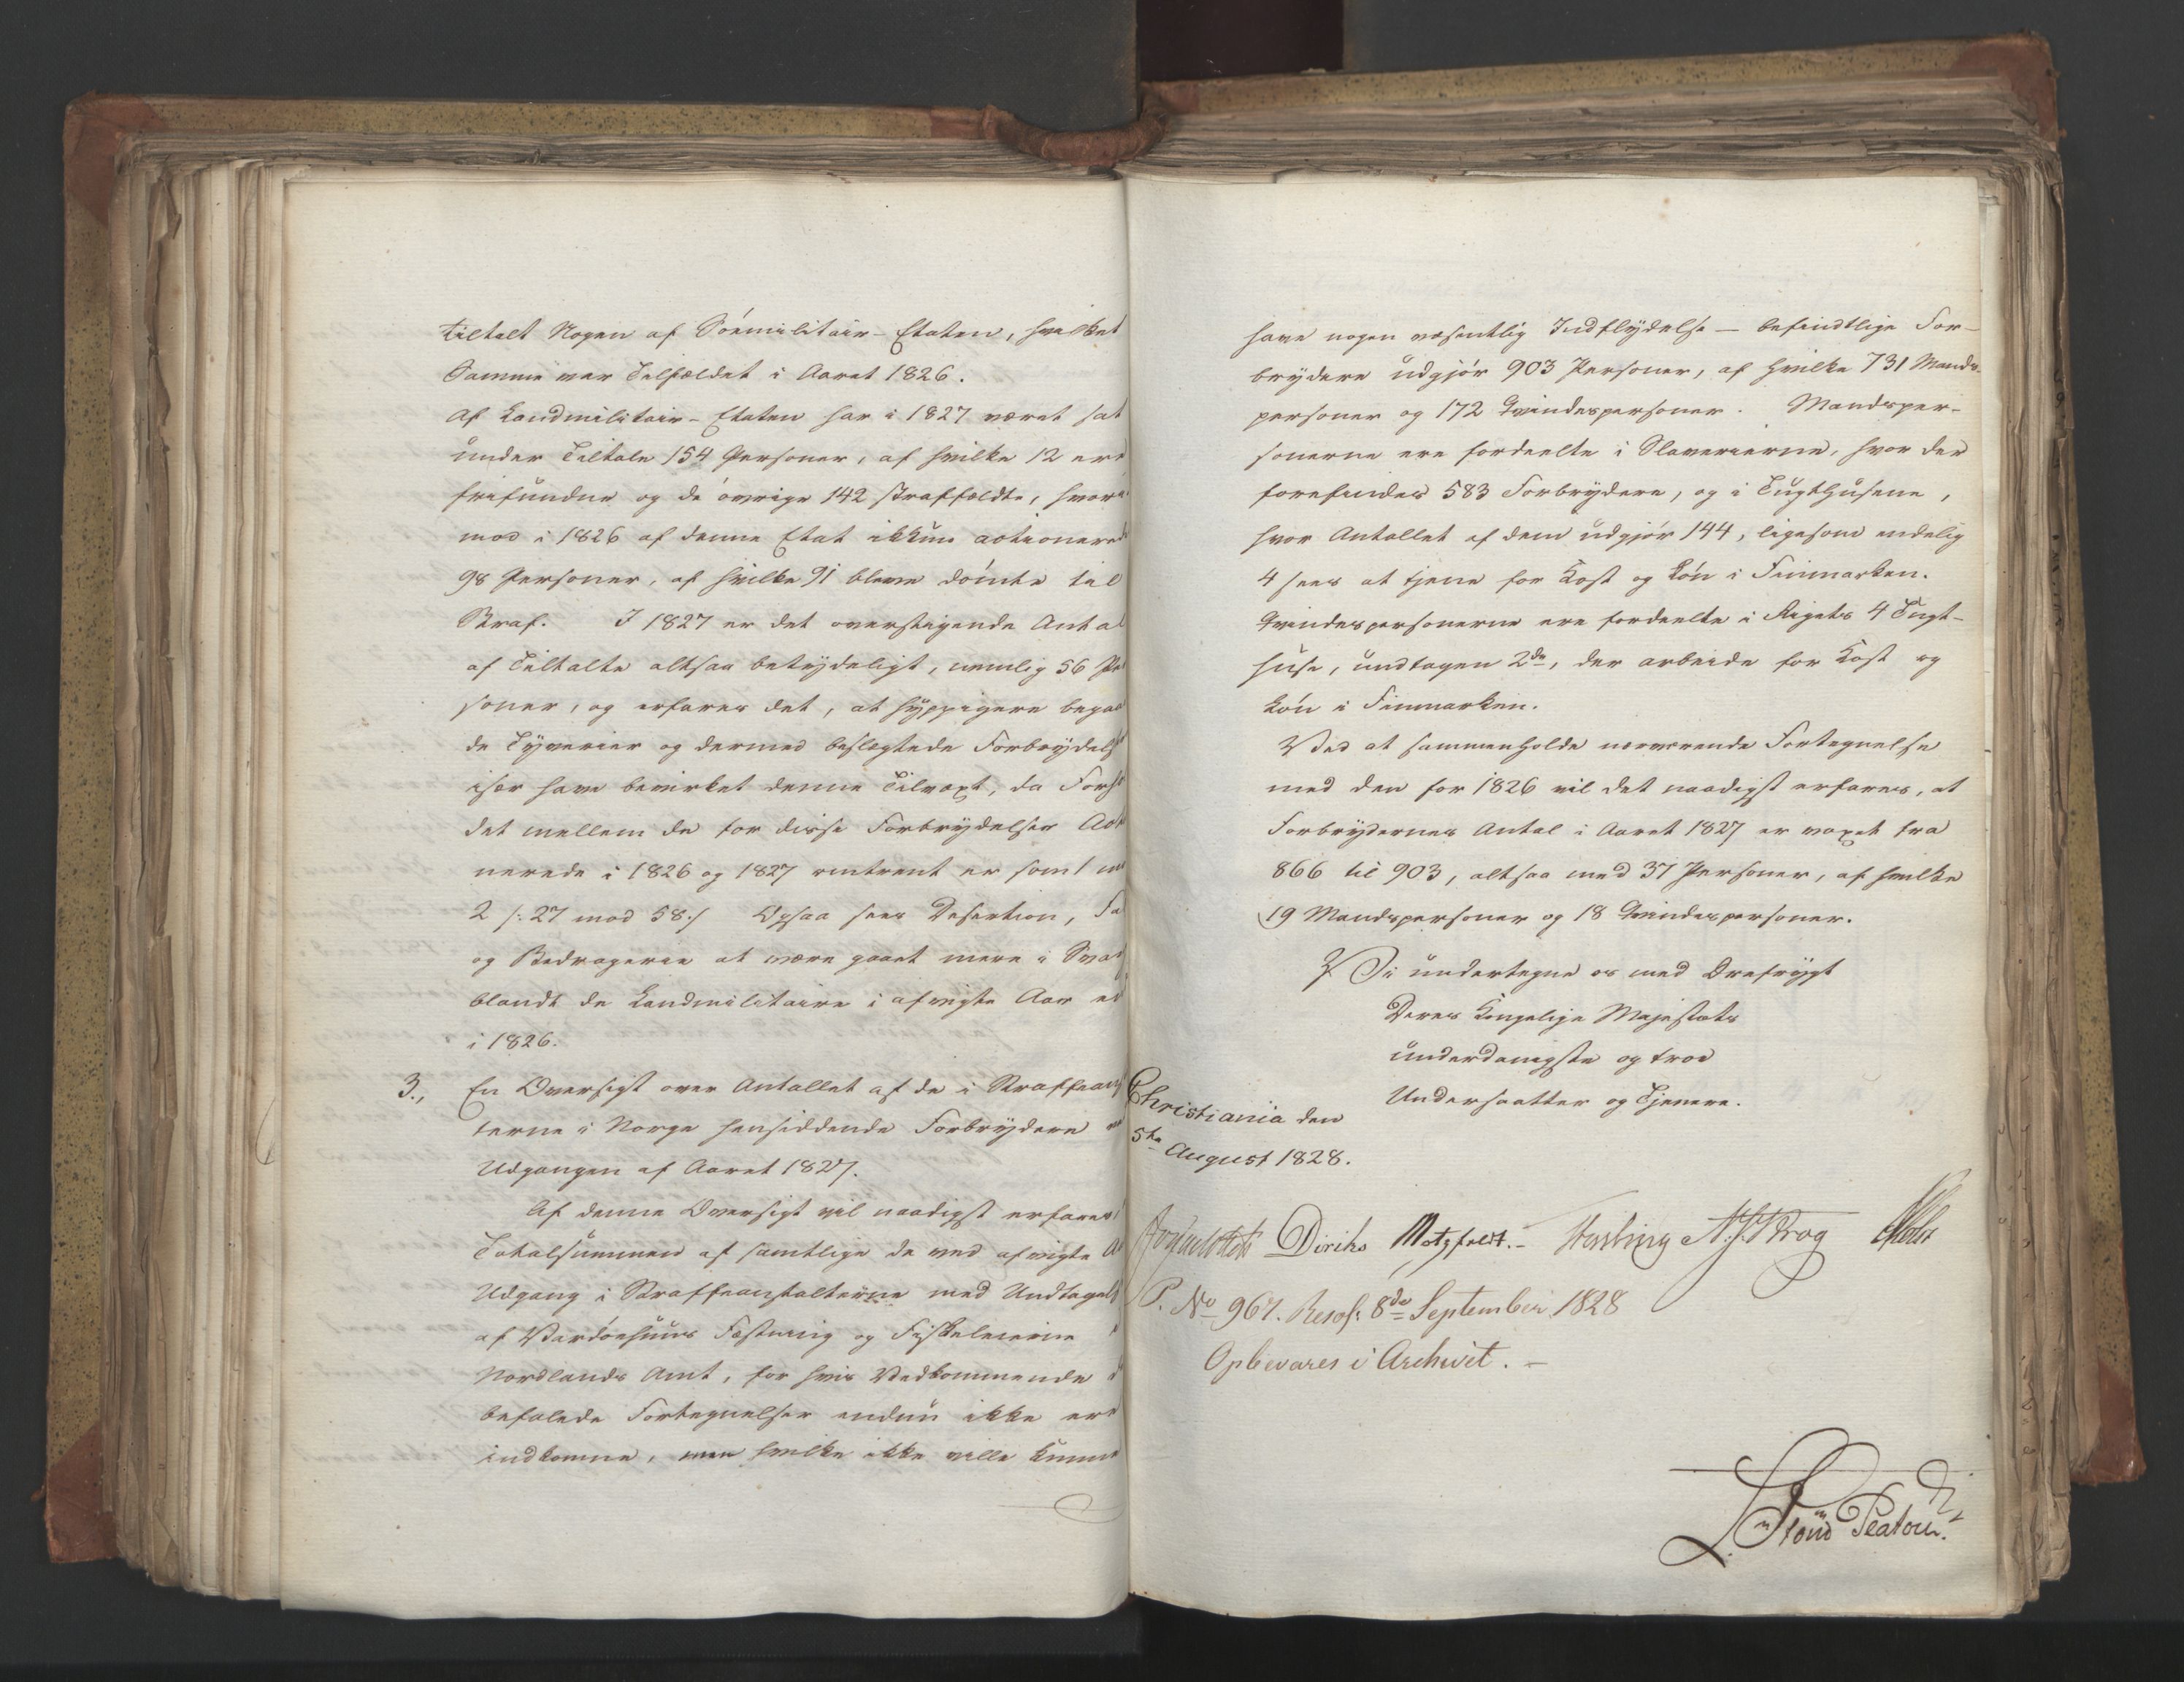 tiltalt Nogen af Søemilitair-Etaten, hvilket
Samme var Tilfældet i Aaret 1826.
Af Landmilitair-Etaten har i 1827 været sat
under Tiltale 154 Personer, af hvilke 12 ere
frifundne og de øvrige 142 straffældte, hvor
mod i 1826 af denne Etat ikkun actionerede
98 Personer, af hvilke 91 bleve dømte til
Straf. I 1827 er det overstigende Antal
af Tiltalte altsaa betydeligt, nemlig 56 Per
soner, og erfares det, at hyppigere begaae
de Tyverier og dermed beslægtede Forbrydels
især have bevirket denne Tilvext, da Forho
det mellem de for disse Forbrydelser Act
nerede i 1826 og 1827 omtrent er som 1 mod
2 /: 27 mod 58 :/ Ogsaa sees Desertion, Fa
og Bedragerie at være gaaet mere i Svan
blandt de Landmilitaire i afvigte Aar end
i 1826.
3., En Oversigt over Antallet af de i Straffeans
terne i Norge hensiddende Forbrydere ved
Udgangen af Aaret 1827.
Af denne Oversigt vil naadigst erfares
Totalsummen af samtlige de ved afvigte Aa
Udgang i Straffeanstalterne med Undtagels
af Vardøehuus Fæstning og Fiskeleierne
Nordlands Amt, for hvis Vedkommende d
befalede Fortegnelser endnu ikke ere
indkomne, men hvilke ikke ville kunne
have nogen væsentlig Indflydelse — befindtlige For-
brydere udgjør 903 Personer, af hvilke 731 Mands-
personer og 172 Qvindespersoner. Mandsper-
sonerne ere fordeelte i Slaverierne, hvor der
forefindes 583 Forbrydere, og i Tugthusene,
hvor Antallet af dem udgjør 144, ligesom endelig
4 sees at tjene for Kost og Løn i Finmarken.
Qvindespersonerne ere fordeelte i Rigets 4 Tugt-
huse, undtagen 2de, der arbeide for Kost og
Løn i Finmarken.
Ved at sammenholde nærværende Fortegnelse
med den for 1826 vil det naadigst erfares, at
Forbrydernes Antal i Aaret 1827 er voxet fra
866 til 903, altsaa med 37 Personer, af hvilke
19 Mandspersoner og 18 Qvindespersoner.
Vi undertegne os med Ærefrygt
Deres Kongelige Majestæts
underdanigste og troe
Undersaatter og Tjenere.
Christiania den
5te August 1828.
Diriks Motzfeldt.- N. J. Krog
P. No 967. Resol: 8de September 1828
Opbevares i Archivet.-